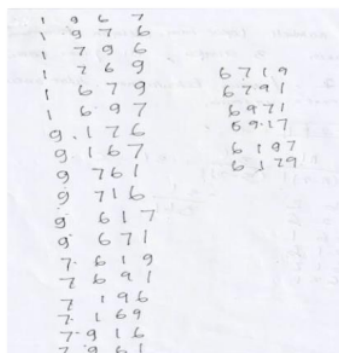 1 9 6 7
1 9 7 6
1 7 9 6
1 7 6 9
1 6 7 9
1 6 9 7
9 . 1 7 6
9 1 6 7
9 7 6 1
9 7 1 6
9 6 1 7
9 6 7 1
7 . 6 1 9
7 6 9 1
7 1 9 6
7 . 1 6 9
7 - 9 1 6
7 . 9 6 1
6 7 1 9
6 7 9 1
6 9 7 1
6 9 . 1 7
6 1 9 7
6 1 7 9